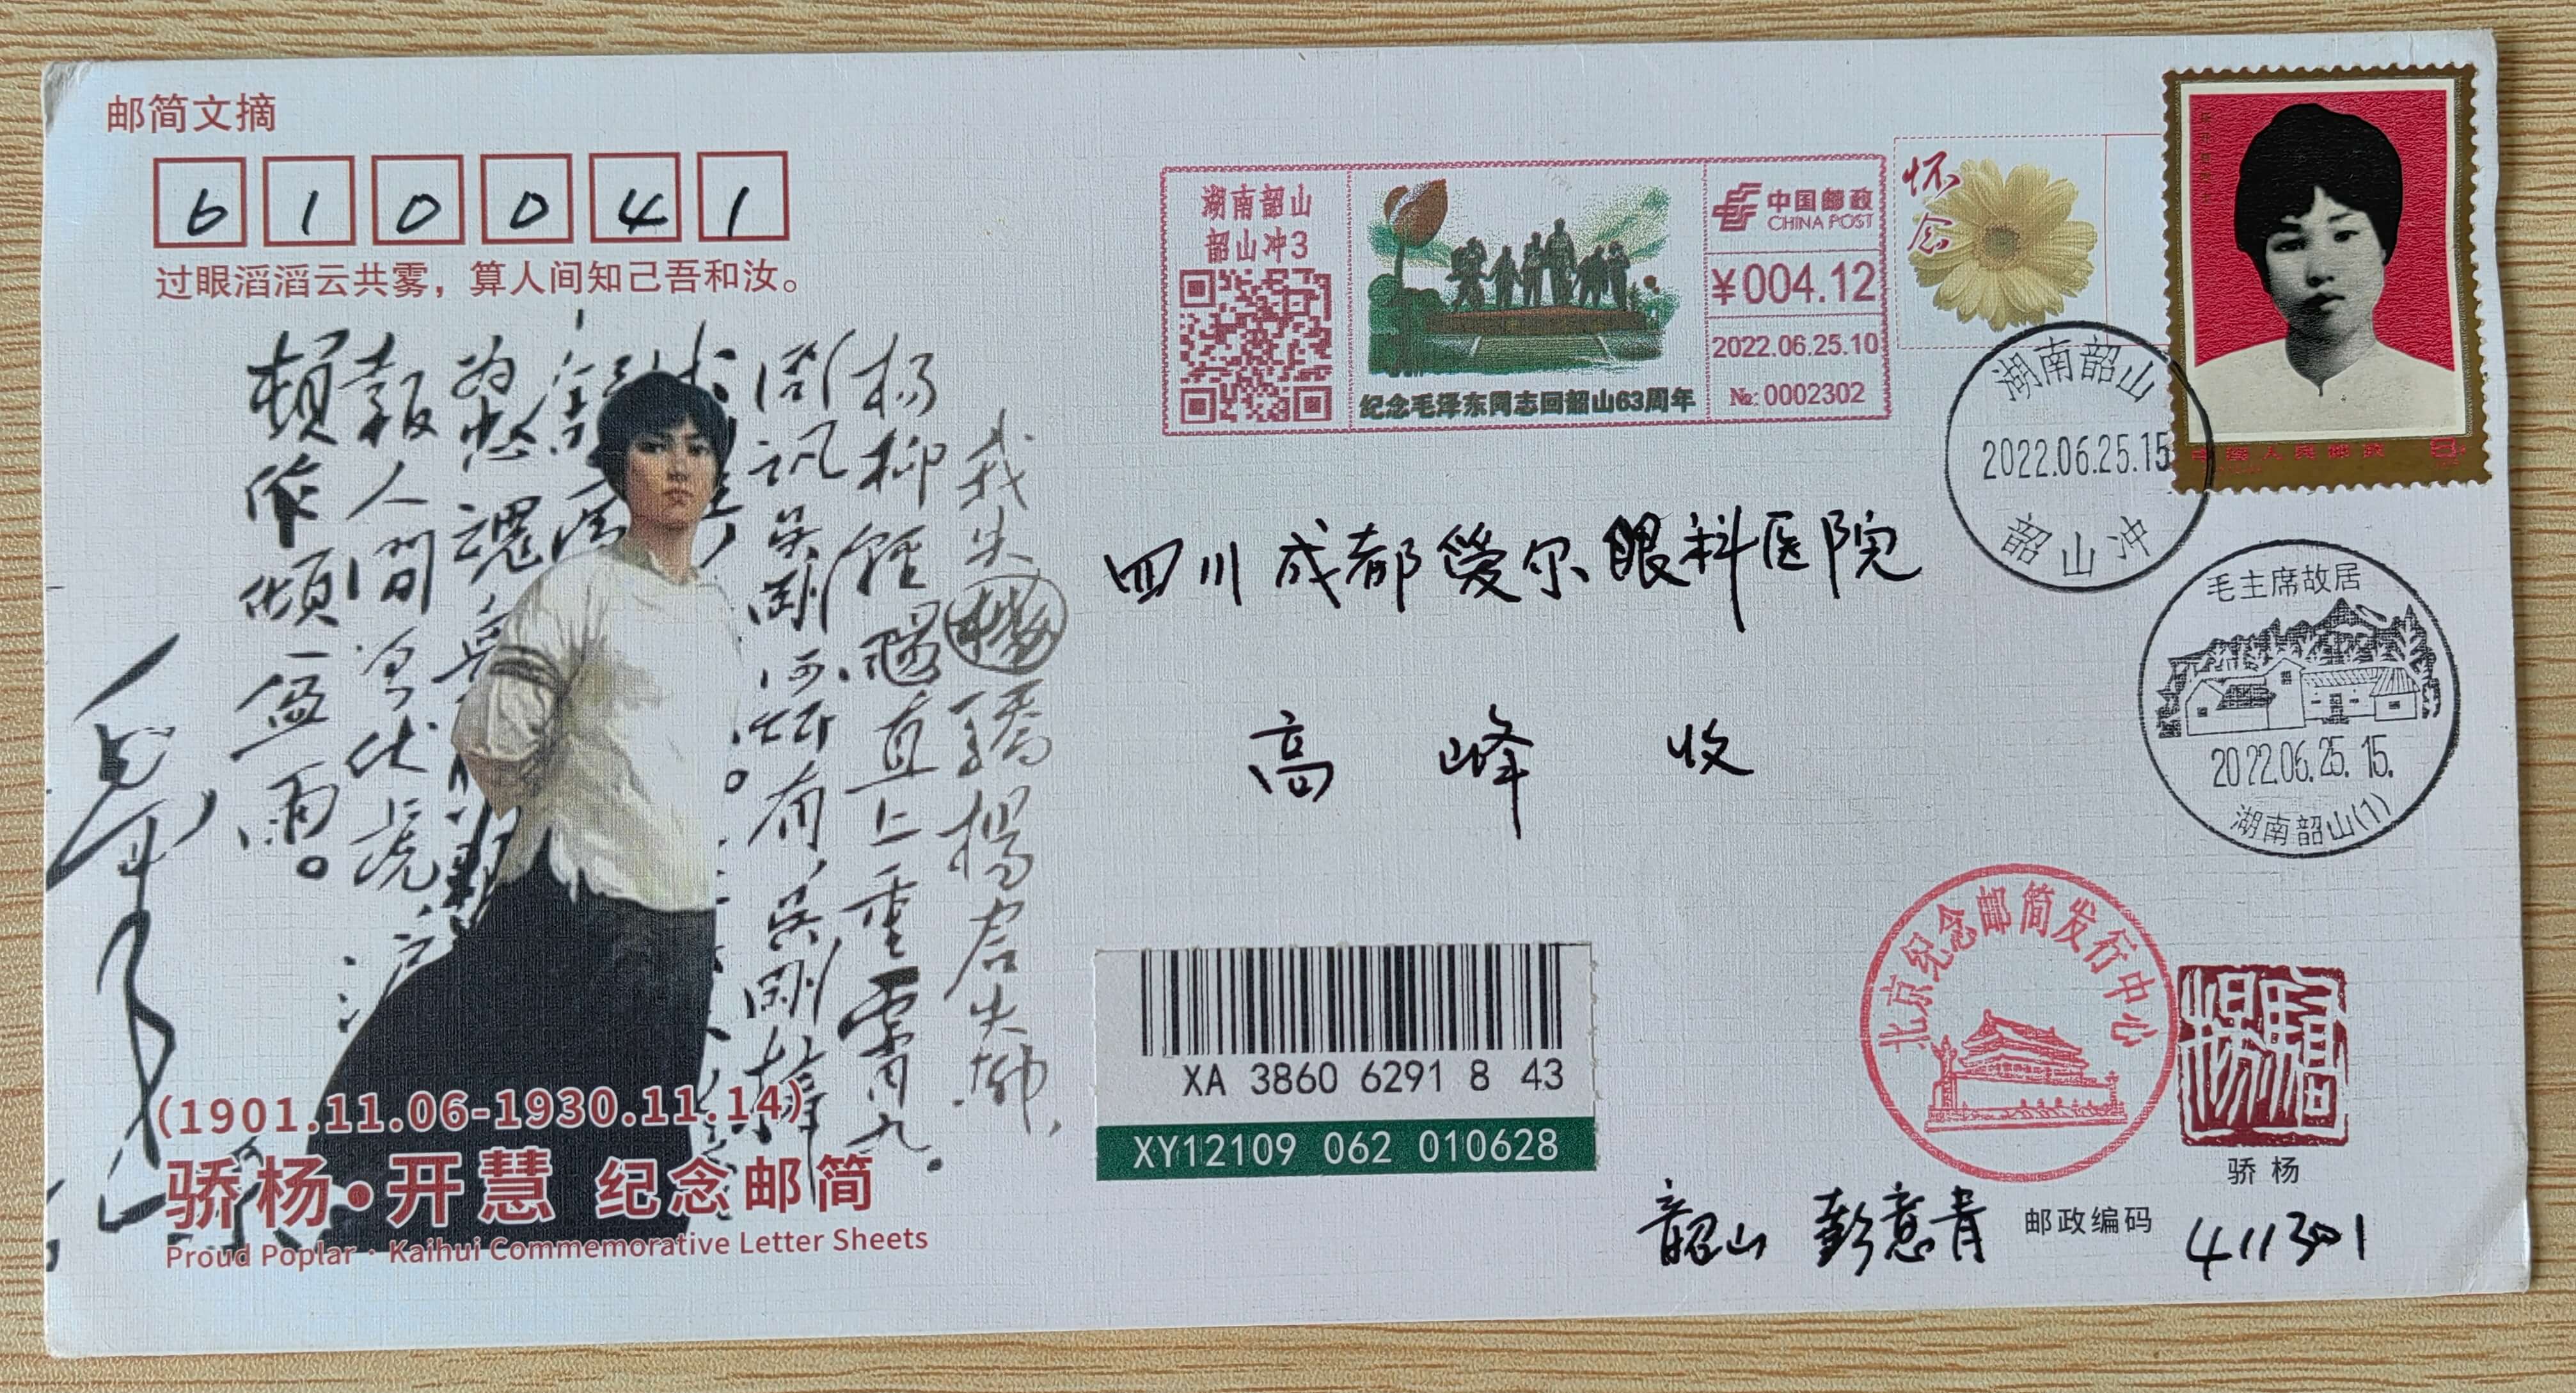 邮简文摘
6 1 0 0 4 1
过眼滔滔云共雾，算人间知己吾和汝。
湖南韶山
韶山冲3
纪念毛泽东同志回韶山63周年
中国邮政
CHINA POST
¥004.12
2022.06.25.10
№:0002302
怀念
湖南韶山
2022.06.25.15
韶山冲
毛主席故居
2022.06.25.15.
湖南韶山(1)
我失
骄杨君失柳，
杨柳轻飏直上重霄九。
问讯吴刚何所有，吴刚捧
忽报人间曾伏虎
顿作倾盆雨。
四川成都爱尔眼科医院
高峰 收
XA 3860 6291 8 43
XY12109 062 010628
北京纪念邮简发行中心
骄杨
韶山 彭意青 邮政编码 411301
(1901.11.06-1930.11.14)
骄杨·开慧 纪念邮简
Proud Poplar · Kaihui Commemorative Letter Sheets